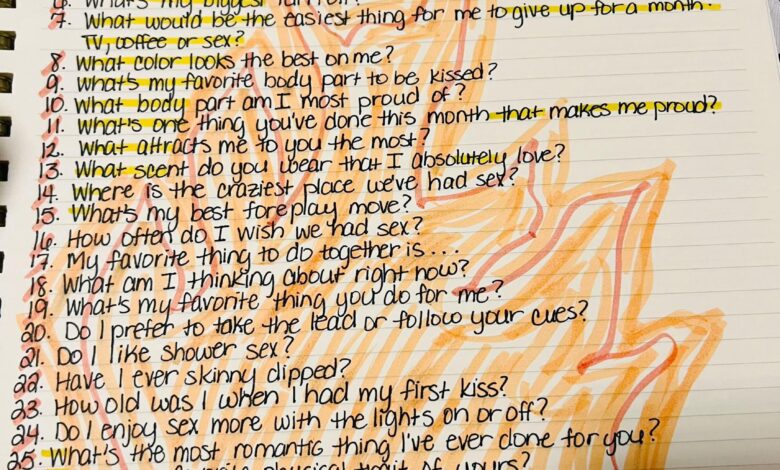 6. What's my biggest turn on?
7. What would be the easiest thing for me to give up for a month.
TV, coffee or sex?
8. What color looks the best on me?
9. What's my favorite body part to be kissed?
10. What body part am I most proud of?
11. What's one thing you've done this month that makes me proud?
12. What attracts me to you the most?
13. What scent do you wear that I absolutely love?
14. Where is the craziest place we've had sex?
15. What's my best foreplay move?
16. How often do I wish we had sex?
17. My favorite thing to do together is...
18. What am I thinking about right now?
19. What's my favorite thing you do for me?
20. Do I prefer to take the lead or follow your cues?
21. Do I like shower sex?
22. Have I ever skinny dipped?
23. How old was I when I had my first kiss?
24. Do I enjoy sex more with the lights on or off?
25. What's the most romantic thing I've ever done for you?
favorite physical trait of yours?